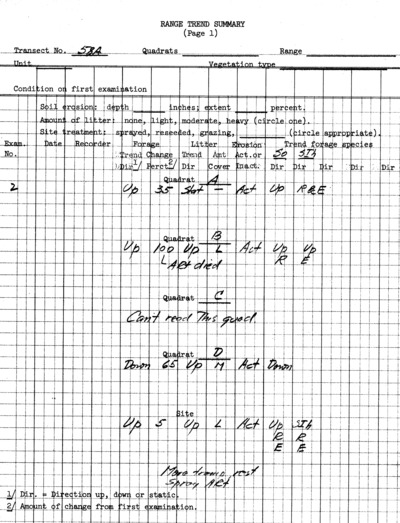 RANGE TREND SUMMARY
(Page 1)
Transect No. 58A Quadrats Range
Unit Vegetation type
Condition on first examination
Soil erosion: depth inches; extent percent.
Amount of litter: none, light, moderate, heavy (circle one).
Site treatment: sprayed, reseeded, grazing, (circle appropriate).
Exam. Date Recorder Forage Litter Erosion Trend forage species
No. Trend Change Trend Amt Act.or So SIh
Dir 1/ Perct 2/ Dir Cover Inact. Dir Dir Dir Dir Dir
Quadrat A
2 Up 35 Stat — Act Up R&E
Quadrat B
Up 100 Up L Act Up Up
ARt died R E
Quadrat C
Can't read This quad.
Quadrat D
Down 65 Up M Act Down
Site
Up 5 Up L Act Up SIh
R R
E E
rest
Spray ARt
1/ Dir. = Direction up, down or static.
2/ Amount of change from first examination.